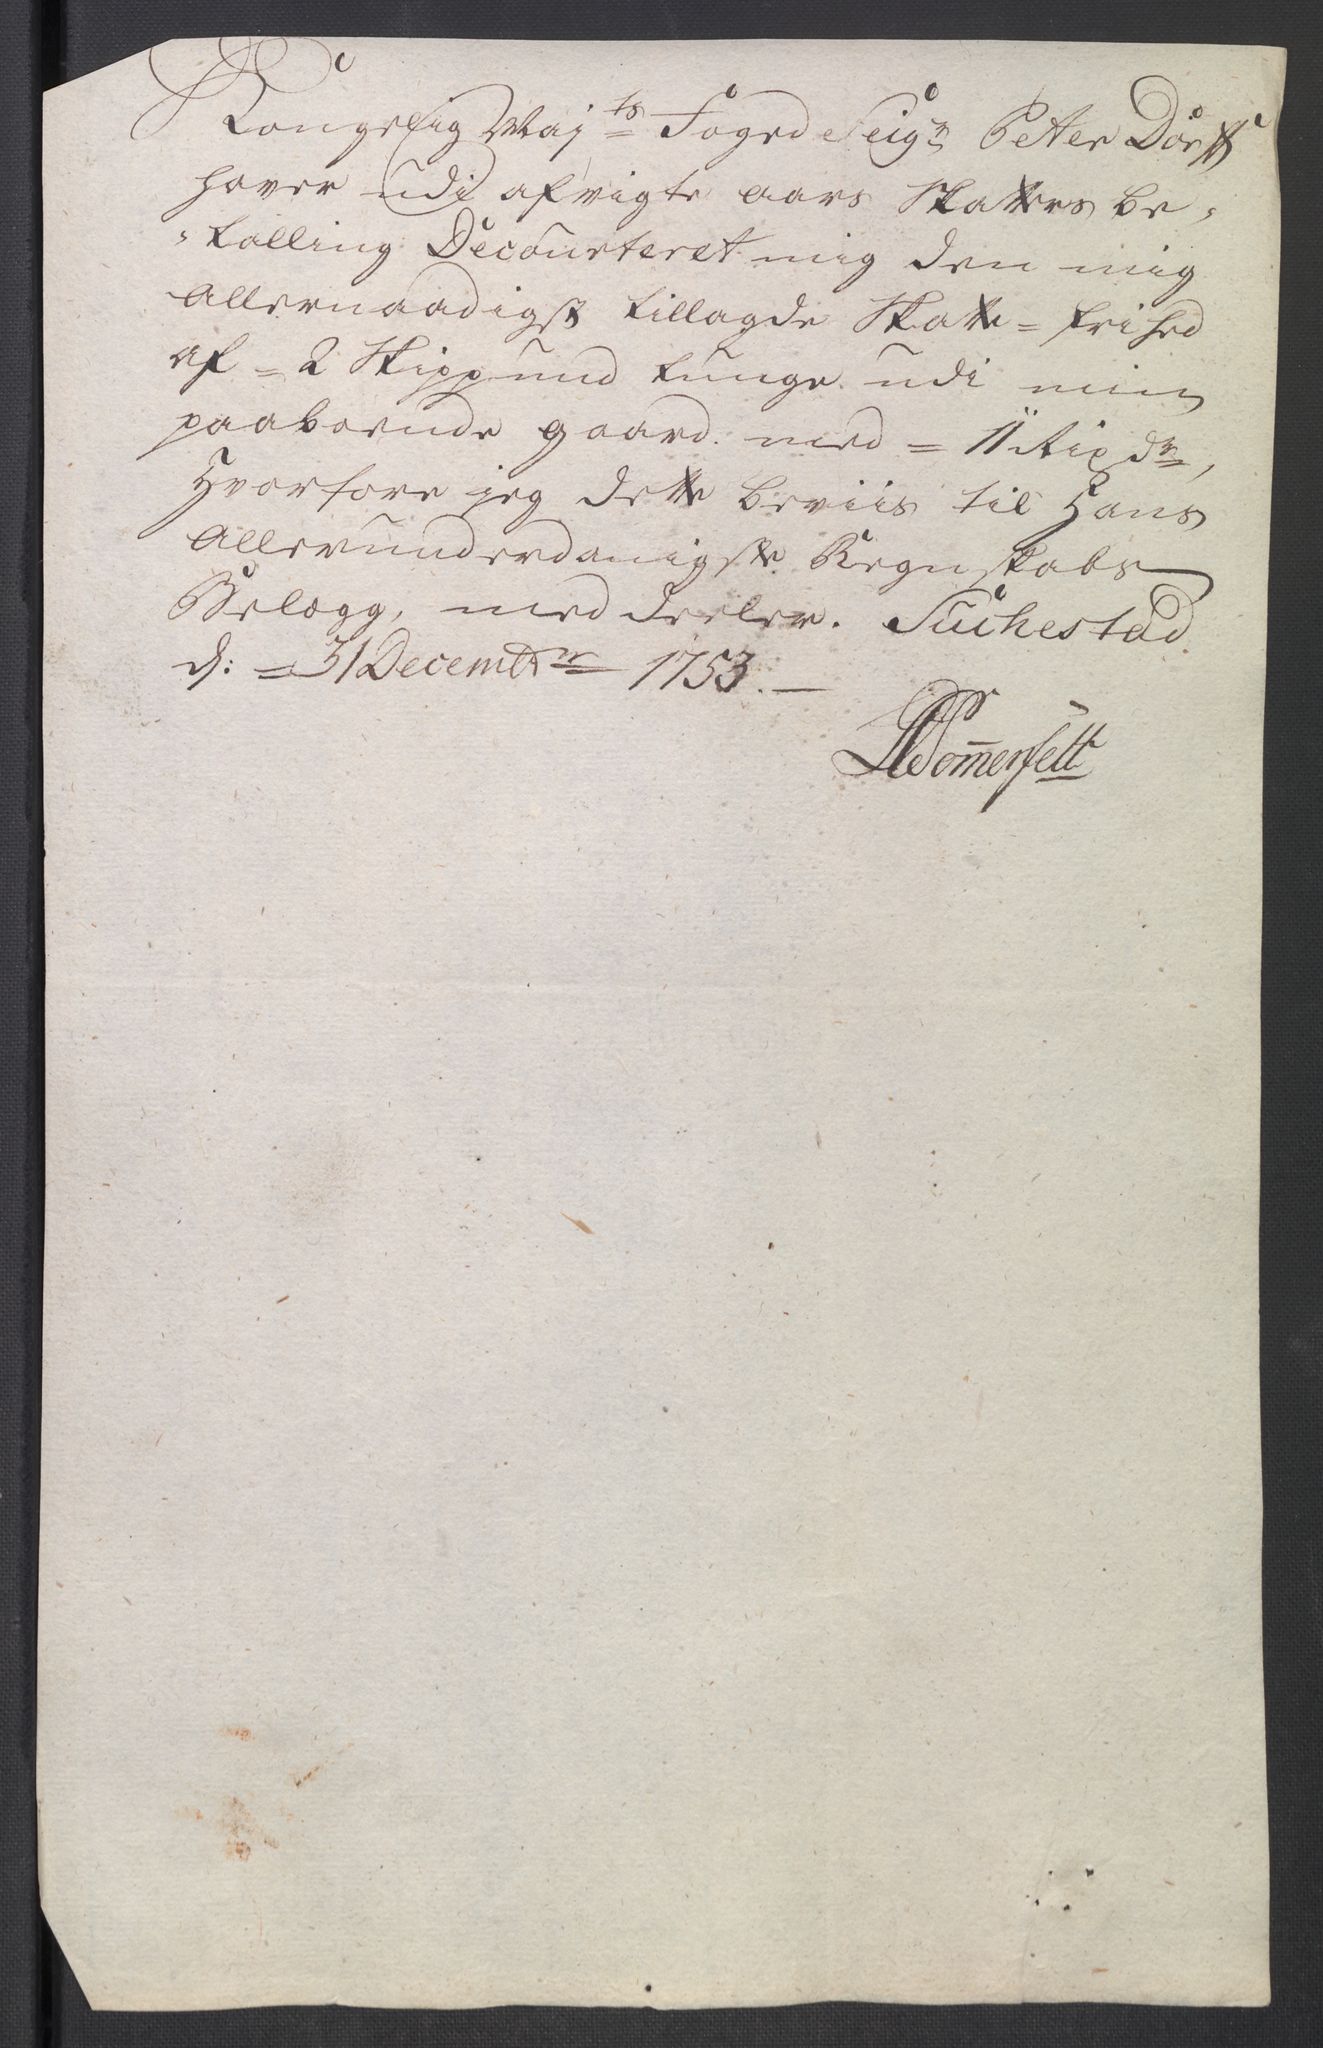 Kongelig Maj:ts Foged Seig:r Peter Dorff
haver udi afvigte aars Skatters be,,
,,talling Decourteret mig den mig
allernaadigst tillagde Skatte = frihed
af = 2 Skippund tunge udi min
paaboende gaard. med = 11 Rixd:r,
Hvorfore jeg dette beviis til Hans
allerunderdanigste Regnskabs
Belægg, meddeeler. Suihestad
d: = 31 Decembr: 1753. —
Somerfeltt